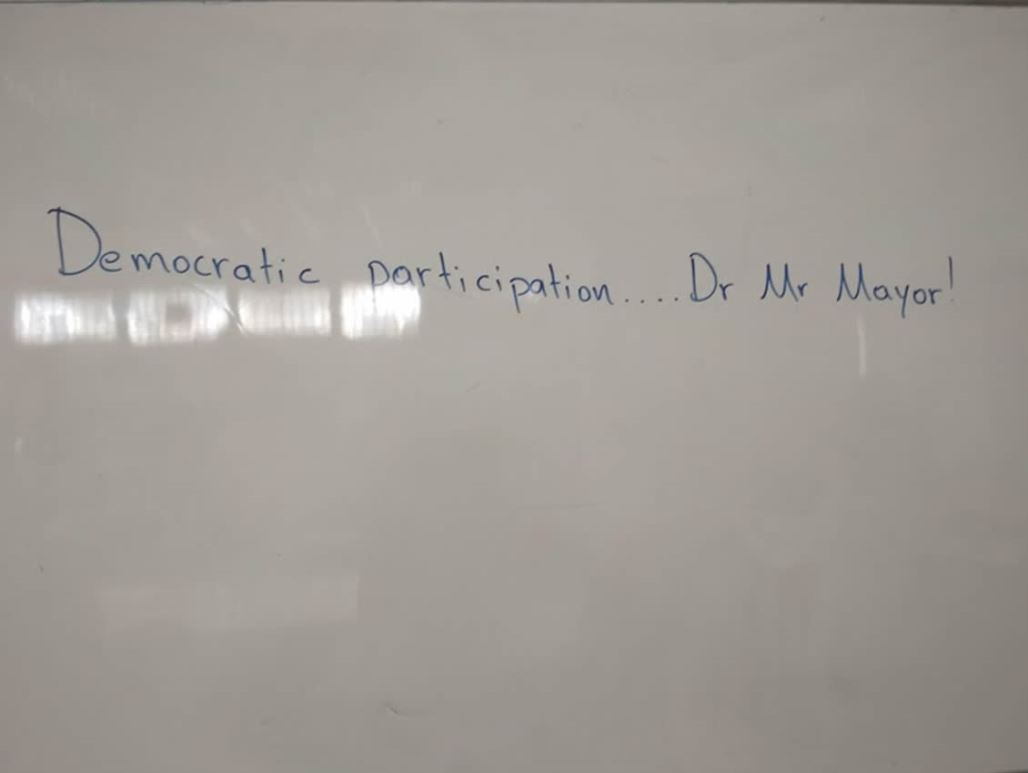 Democratic participation....Dr Mr Mayor!